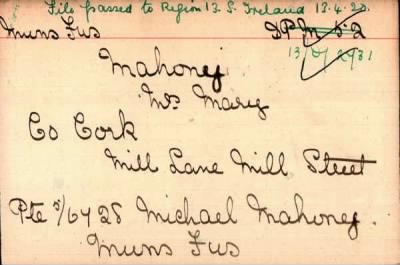 File passed to Region 13. S. Ireland 12.4.20.
Muns Fus
D.P.M. 52
13/D/2931
Mahoney
Mrs Mary
Co Cork
Mill Lane Mill Street
Pte 5/6428 Michael Mahoney.
Muns Fus